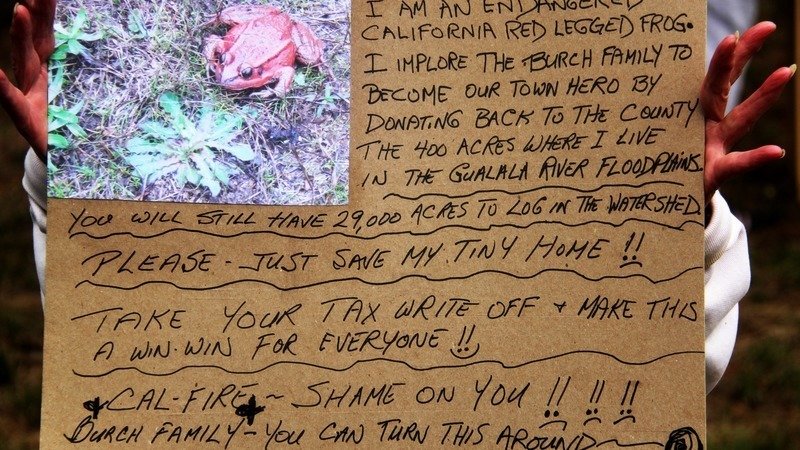 I AM AN ENDANGERED
CALIFORNIA RED LEGGED FROG.
I IMPLORE THE BURCH FAMILY TO
BECOME OUR TOWN HERO BY
DONATING BACK TO THE COUNTY
THE 400 ACRES WHERE I LIVE
IN THE GUALALA RIVER FLOODPLAINS.
YOU WILL STILL HAVE 29,000 ACRES TO LOG IN THE WATERSHED.
PLEASE - JUST SAVE MY TINY HOME !!
TAKE YOUR TAX WRITE OFF + MAKE THIS
A WIN-WIN FOR EVERYONE !!
CAL-FIRE ~ SHAME ON YOU !! !! !!
BURCH FAMILY - YOU CAN TURN THIS AROUND